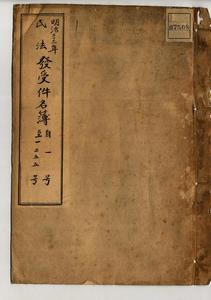 明治十三年
民法發受件名簿
自一号
至一二五五号